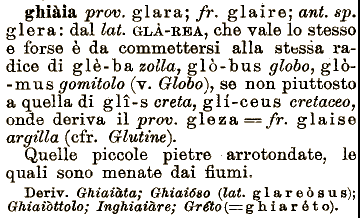 ghiàia prov. glara; fr. glaire; ant. sp.
glera: dal lat. GLÀ-REA, che vale lo stesso
e forse è da commettersi alla stessa ra-
dice di glè-ba zolla, glò-bus globo, glò-
-mus gomitolo (v. Globo), se non piuttosto
a quella di glî-s creta, glí-ceus cretaceo,
onde deriva il prov. gleza = fr. glaise
argilla (cfr. Glutine).
Quelle piccole pietre arrotondate, le
quali sono menate dai fiumi.
Deriv. Ghiaiàta; Ghiaióso (lat. glareòsus);
Ghiaiòttolo; Inghiaiàre; Gréto (=ghiaréto).